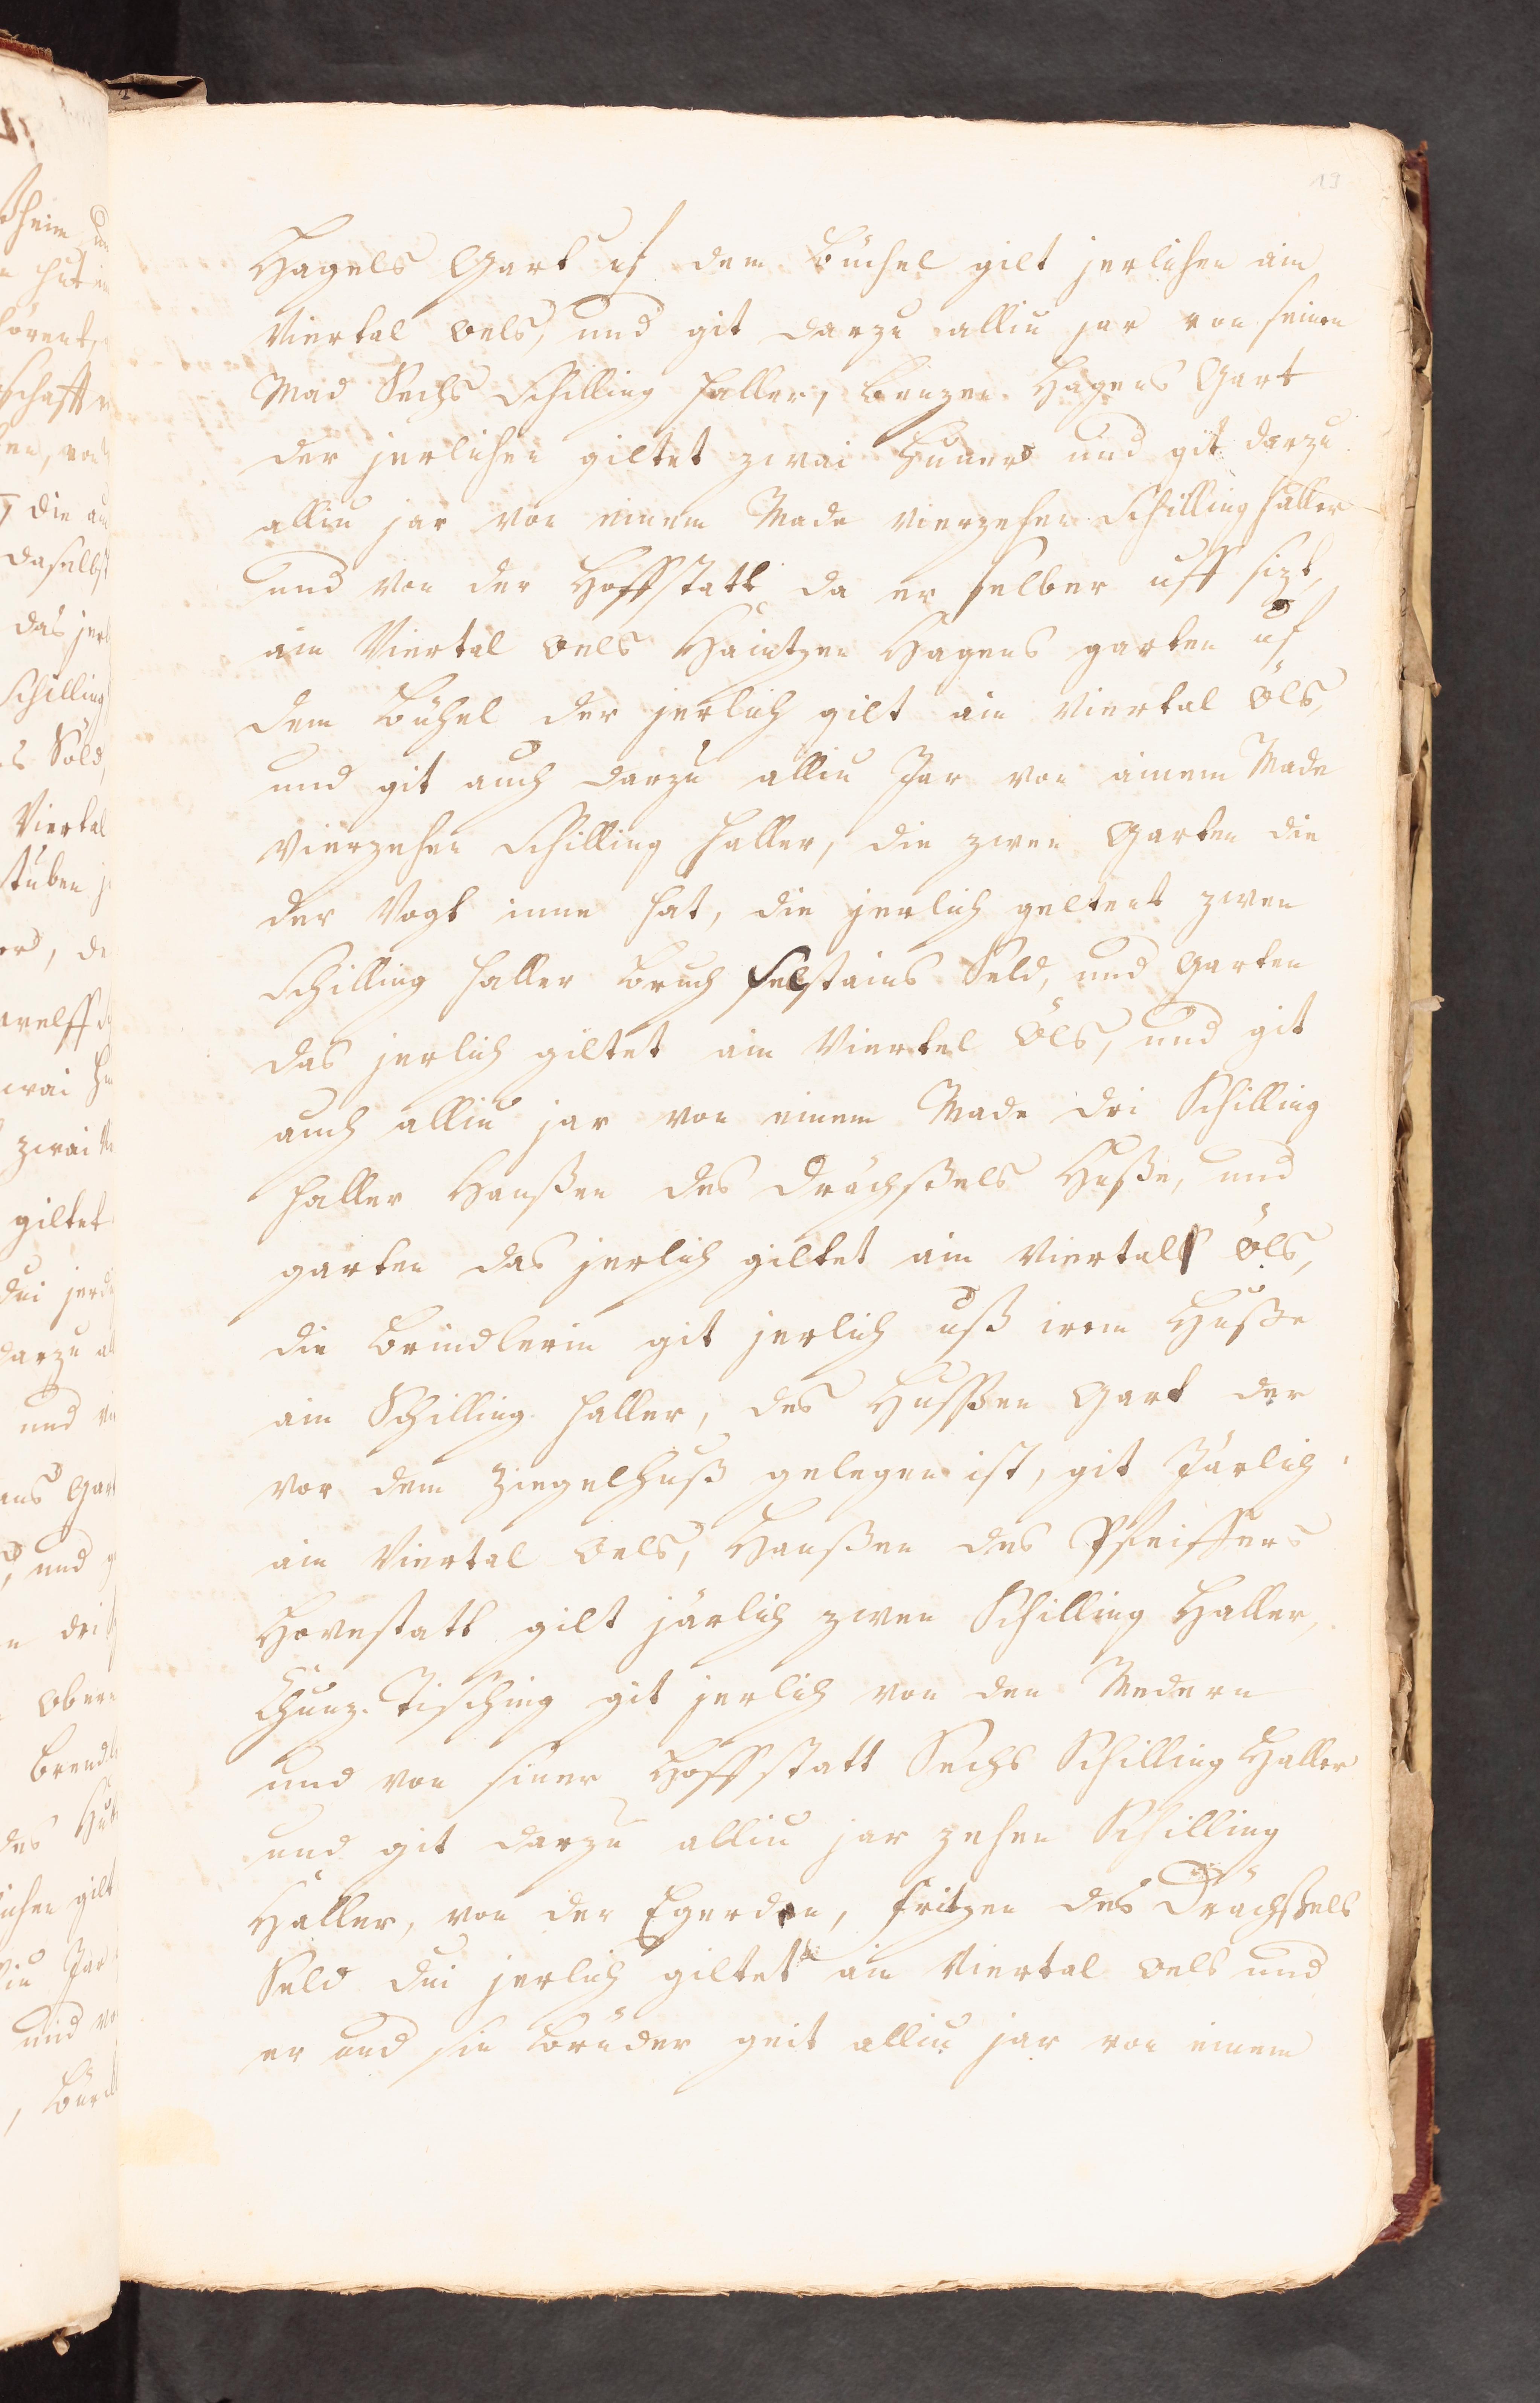 19
Hagels Gart uf dem Büchel gilt jerlichen ain
Viertal Oels, und git darzu alliu jar von seinen
Mad Sechs Schilling haller, Benzen Hagens Gart
der jerlichen giltet zwai Huner und git darzu
alliu jar von einem Made vierzehen Schilling haller
und von der Hoffstatt da er selber uff sizt,
ain Viertel Oels Haintzen Hagens garten uf
dem Bühel der jerlich gilt ain Viertal Öls,
und git auch darzu alliu Jar von ainem Made
vierzehen Schilling haller, die zwen Garten die
der Vogt inne hat, die jerlich geltent zwen
Schilling haller Bruch felstains Seld, und Garten
das jerlich giltet ain Viertel Öls, und git
auch alliu jar von einem Made dri Schilling
haller Hanßen des Drächßels Huße, und
garten das jerlich giltet ain Viertal Öls,
die Brindlerin git jerlich uß irem Huße
ain Schilling haller, des Hußen Gart der
vor dem Ziegelhuß gelegen ist, git Järlich
ain Viertal Oels, Hanßen des Pfeiffers
Hovestatt gilt järlich zwen Schilling Haller,
Chunz. Tisching git jerlich von den Medern
und von siner Hoffstatt Sechs Schilling Haller
und git darzu alliu jar zehen Schilling
Häller, von der Egerden, fritzen des Drächßels
Seld dui jerlich giltet ain Viertal Oels und
er und sin Brüder geit alliu jar von einem